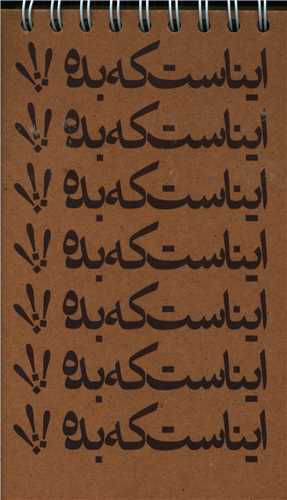 ایناست که بده!!
ایناست که بده!!
ایناست که بده!!
ایناست که بده!!
ایناست که بده!!
ایناست که بده!!
ایناست که بده!!